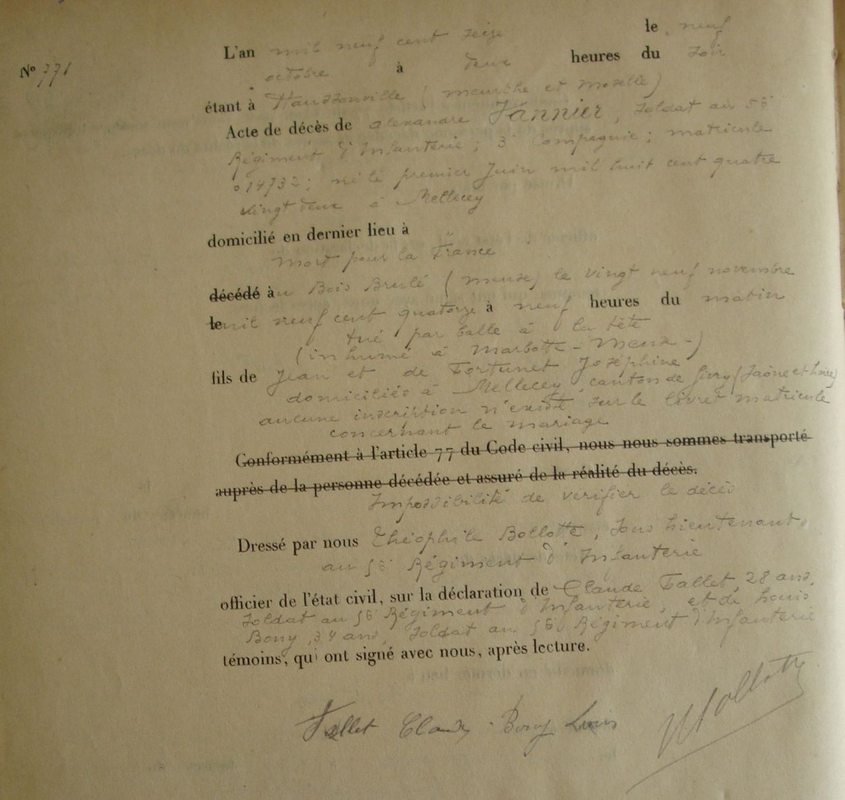 N° 771
L'an mil neuf cent seize le neuf
octobre à deux heures du soir
étant à Haussonville (meurthe et moselle)
Acte de décès de alexandre Jannier, soldat au 56e
Régiment d'Infanterie; 3e Compagnie; matricule
014732; né le premier Juin mil huit cent quatre
vingt deux à Mellecey
domicilié en dernier lieu à
Mort pour la France
décédé au Bois Brulé (meuse) le vingt neuf novembre
le mil neuf cent quatorze à neuf heures du matin
tué par balle à la tête
(inhumé à Marbotte - Meuse -)
fils de Jean et de Fortunet Joséphine
domiciliés à Mellecey, canton de Givry (Saône et Loire)
aucune inscription n'existe sur le livret matricule
concernant le mariage
Conformément à l'article 77 du Code civil, nous nous sommes transporté
auprès de la personne décédée et assuré de la réalité du décès.
Impossibilité de vérifier le décès
Dressé par nous Théophile Bollotte, Sous Lieutenant
au 56e Régiment d'Infanterie
officier de l'état civil, sur la déclaration de Claude Tallet, 28 ans,
soldat au 56e Régiment d'Infanterie, et de Louis
Bony, 34 ans, soldat au 56e Régiment d'Infanterie
témoins, qui ont signé avec nous, après lecture.
Tallet Claude Bony Louis Bollotte